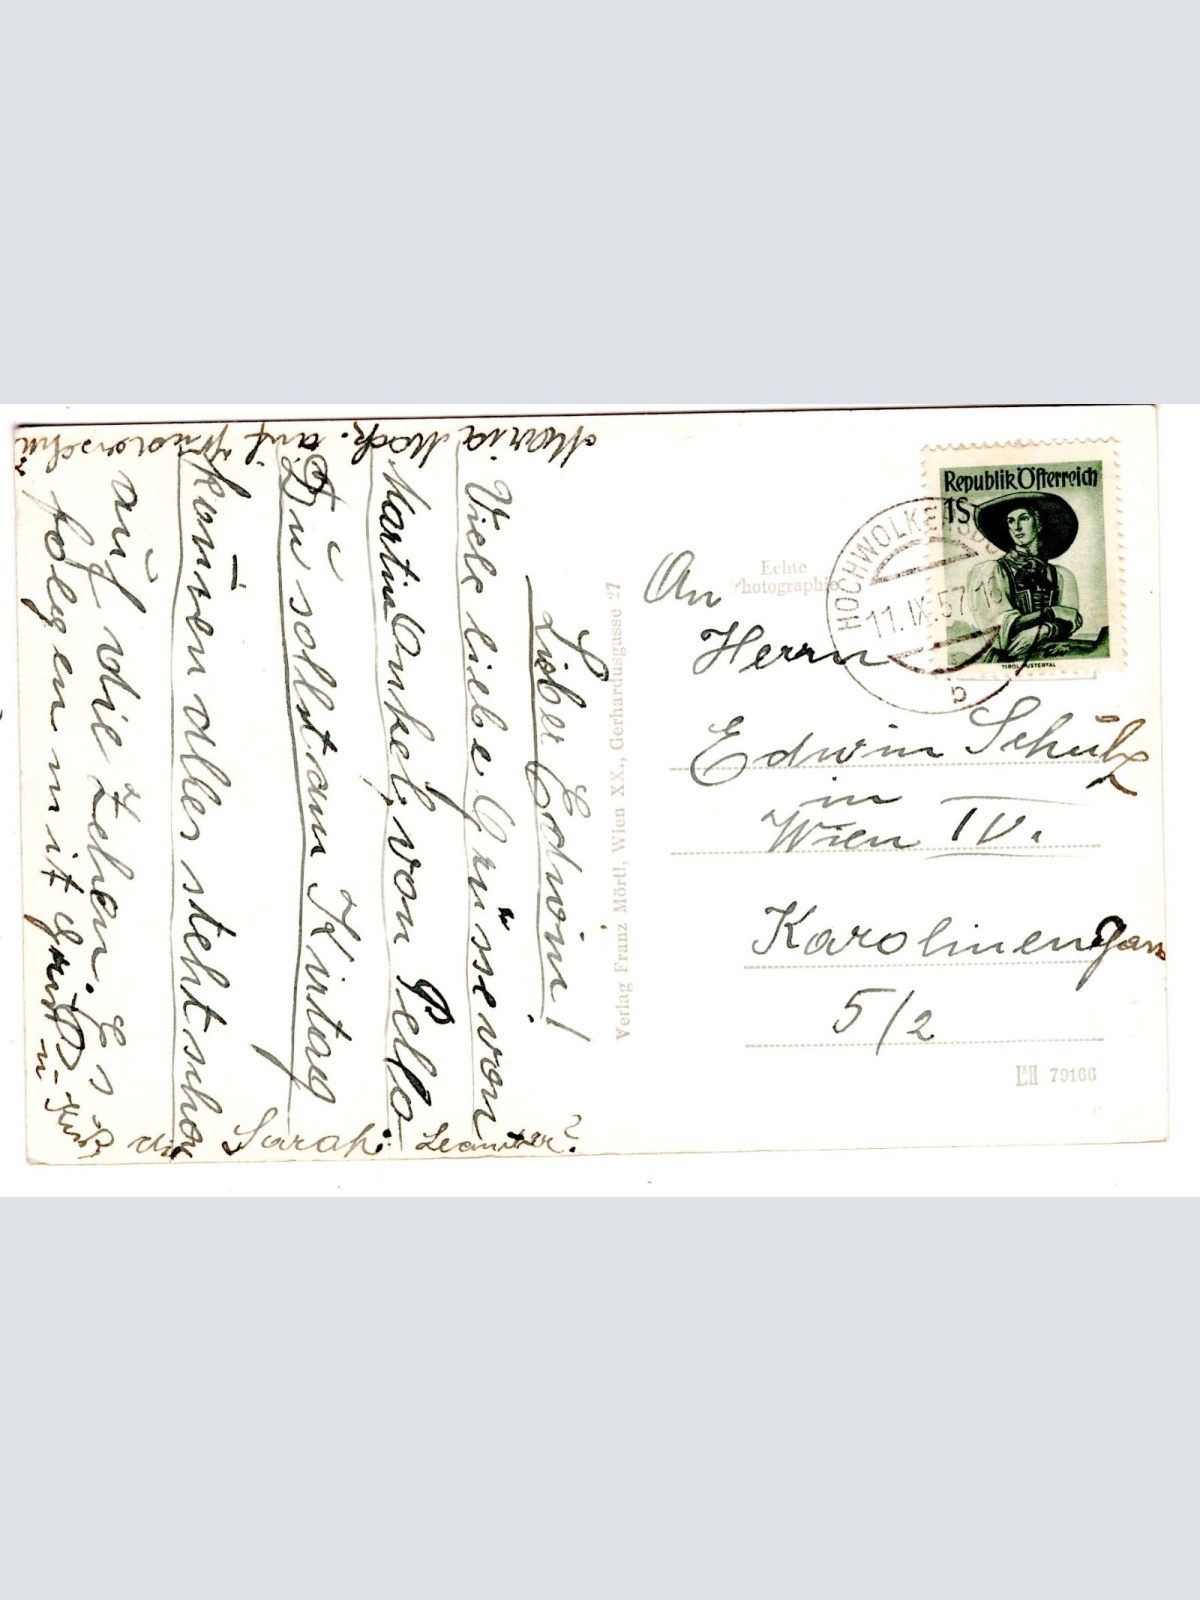 Lieber Edwin!
Viele liebe Grüsse von
Martin Onkel, von Pella
Du sollst am Kirtag
kommen alles steht schon
auf die Zehen. Es
folgen mit Gruß
Sarah
Maria
auf
Echte
Photographie
Verlag Franz Mörtl, Wien XX., Gerhardusgasse 27
Republik Österreich
1S
TIROL PUSTERTAL
HOCHWOLKERSDO
11.IX.57.10
b
An
Herrn
Edwin Schulz
in
Wien IV.
Karolinengan
5/2
79166